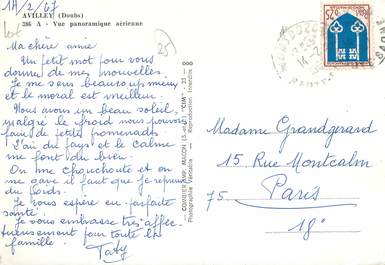 14/2/67
AVILLEY (Doubs)
286 A - Vue panoramique aérienne
25
Ma chère amie
Un petit mot pour vous
donner de mes nouvelles.
Je me sens beaucoup mieux
et le moral est meilleur.
Nous avons un beau soleil,
malgré le froid nous pouvons
faire de petites promenades
L'air du pays et le calme
me font du bien.
On me chouchoute et on
me gave il faut que je reprenne
du poids.
Je vous espère en parfaite
santé.
Je vous embrasse très affec-
tueusement pour toute la
famille.
Taty
COMBIER IMP. MACON (S.-et-L.) "CIM"
Photographie Véritable - Reproduction Interdite
0,25
Madame Grandgerard
15 Rue Montcalm
75 Paris
18e